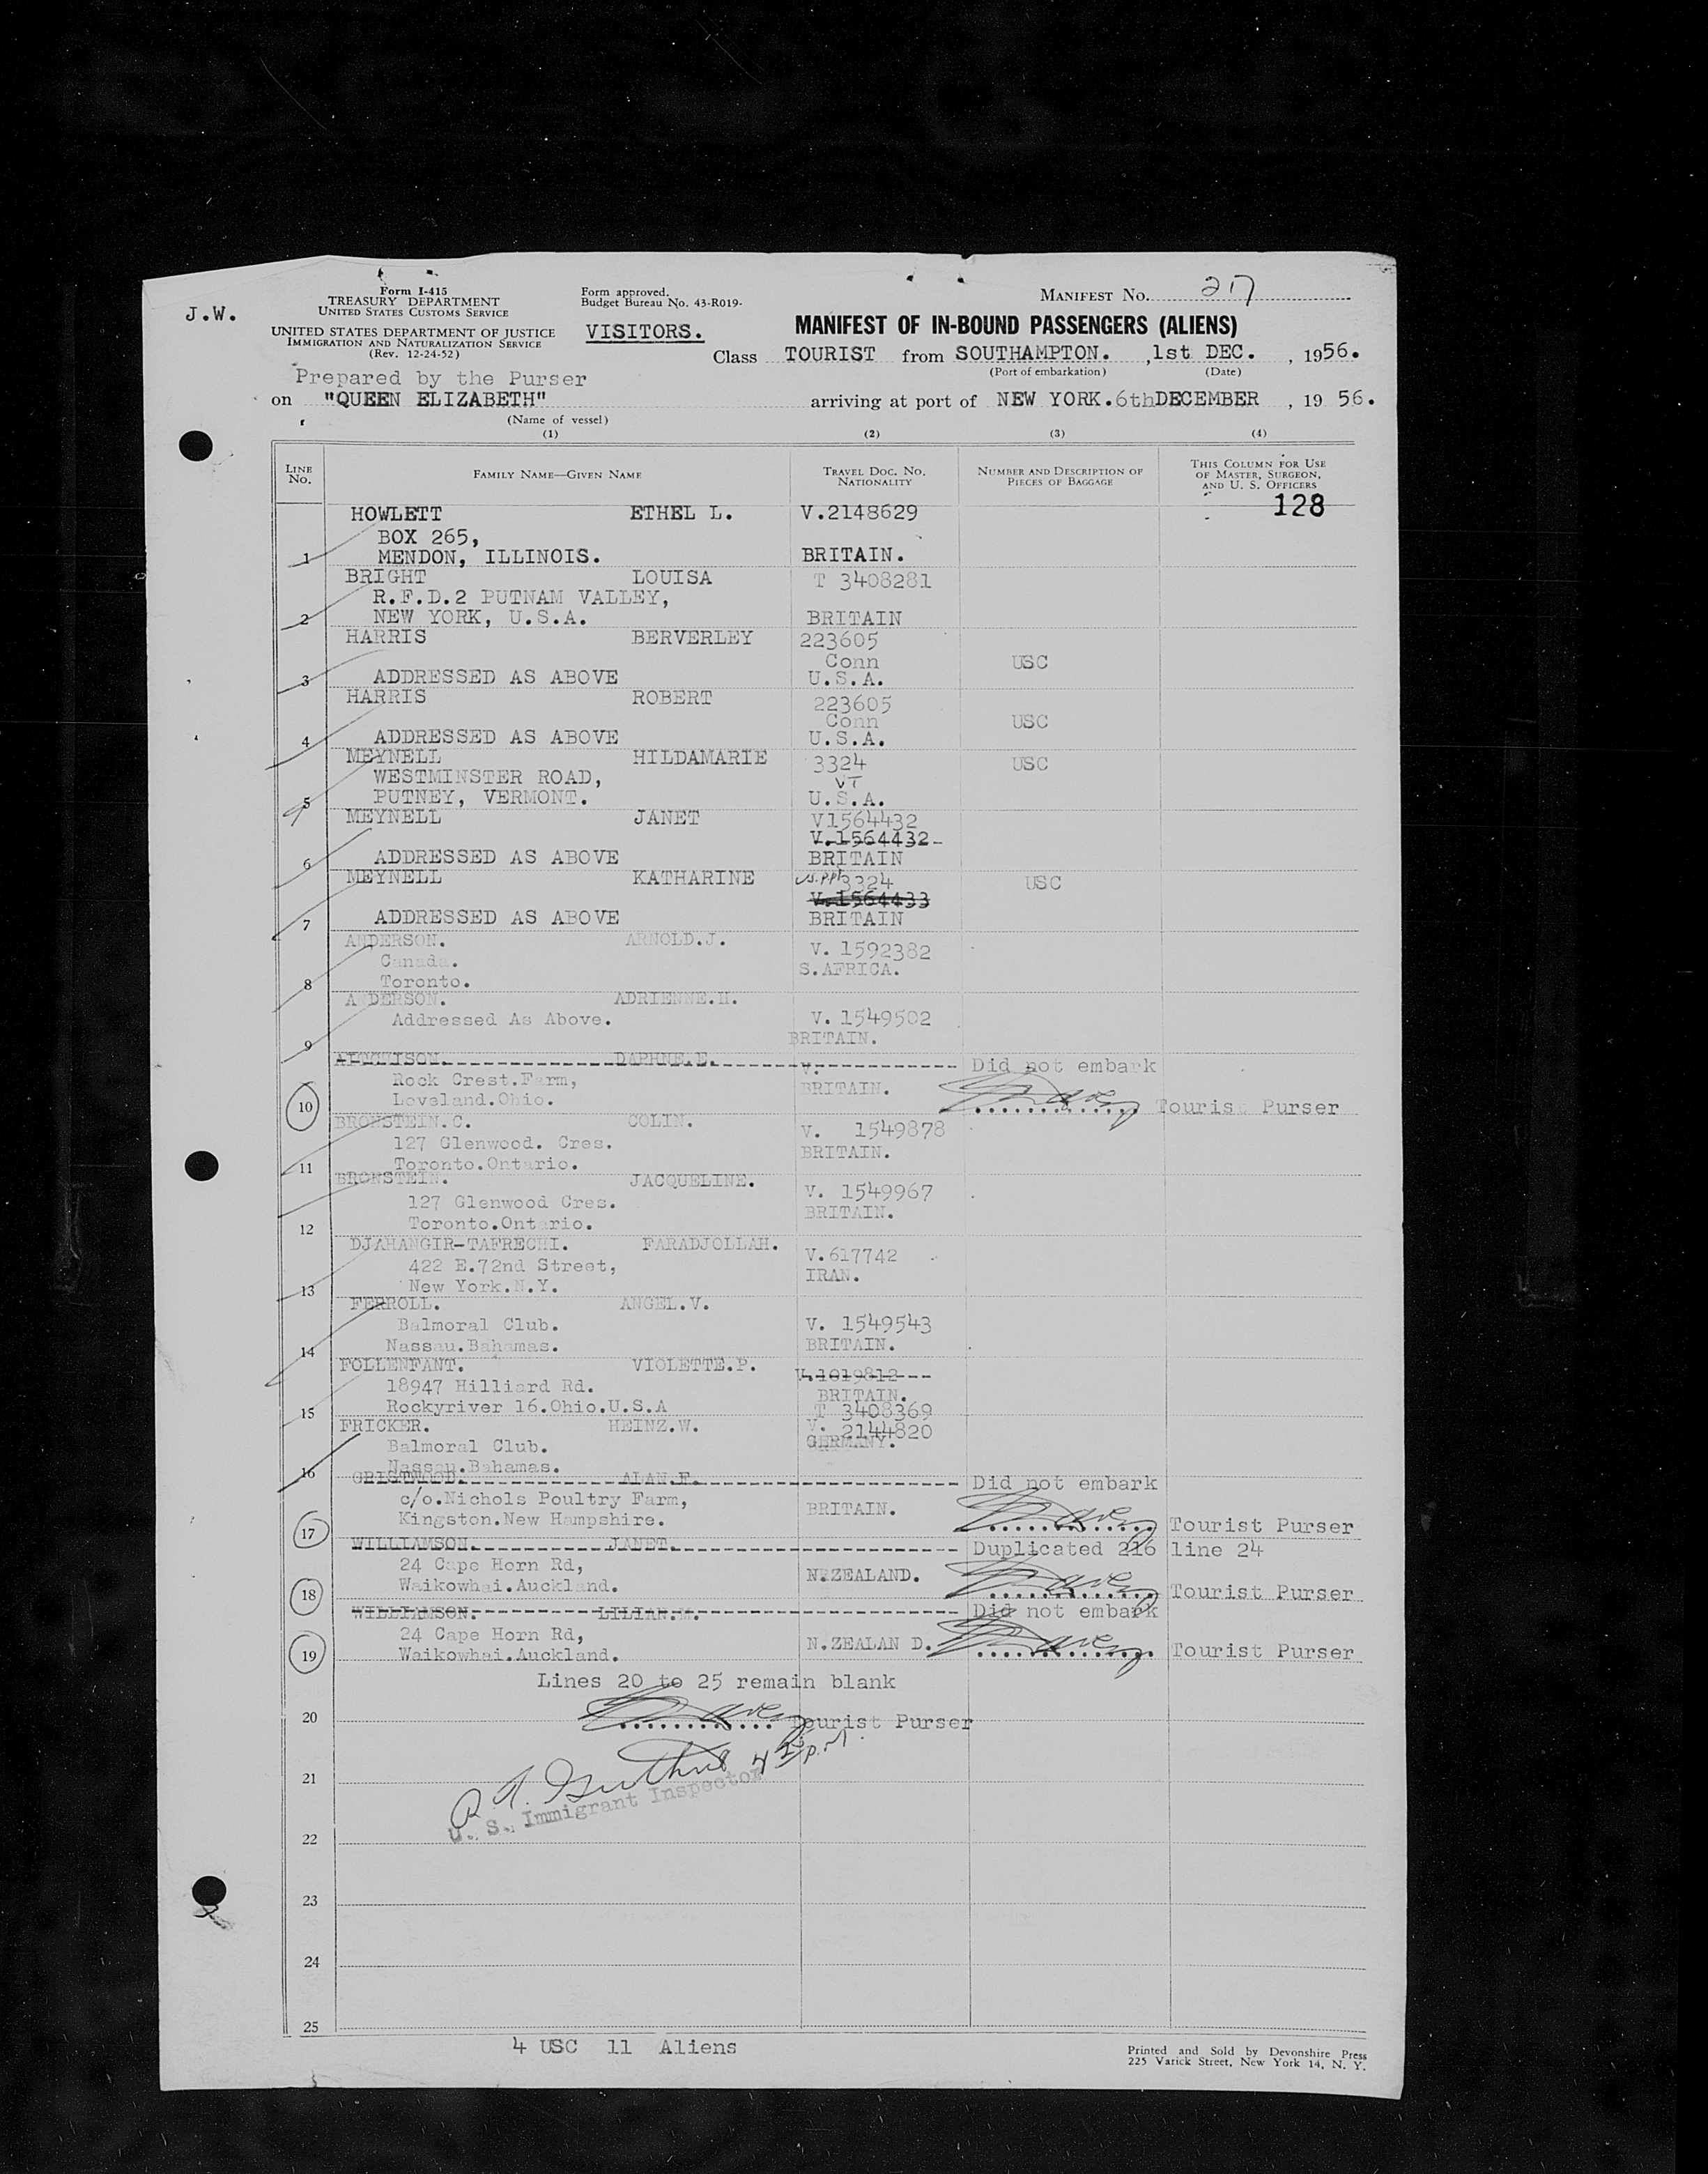 J.W.
Form I-415
TREASURY DEPARTMENT
UNITED STATES CUSTOMS SERVICE
UNITED STATES DEPARTMENT OF JUSTICE
IMMIGRATION AND NATURALIZATION SERVICE
(Rev. 12-24-52)
Form approved.
Budget Bureau No. 43-R019-
VISITORS.
MANIFEST NO. 217
MANIFEST OF IN-BOUND PASSENGERS (ALIENS)
Class TOURIST from SOUTHAMPTON. , 1st DEC. , 1956.
(Port of embarkation) (Date)
Prepared by the Purser
on "QUEEN ELIZABETH" arriving at port of NEW YORK. 6th DECEMBER , 19 56.
(Name of vessel)
(1) (2) (3) (4)
LINE NO. FAMILY NAME—GIVEN NAME TRAVEL DOC. NO. NATIONALITY NUMBER AND DESCRIPTION OF PIECES OF BAGGAGE THIS COLUMN FOR USE OF MASTER, SURGEON, AND U. S. OFFICERS
HOWLETT ETHEL L. V.2148629 128
BOX 265,
1 MENDON, ILLINOIS. BRITAIN.
BRIGHT LOUISA T 3408281
R.F.D.2 PUTNAM VALLEY,
2 NEW YORK, U.S.A. BRITAIN
HARRIS BERVERLEY 223605
Conn USC
3 ADDRESSED AS ABOVE U.S.A.
HARRIS ROBERT 223605
Conn USC
4 ADDRESSED AS ABOVE U.S.A.
MEYNELL HILDAMARIE 3324 USC
WESTMINSTER ROAD, VT
5 PUTNEY, VERMONT. U.S.A.
MEYNELL JANET V1564432
V.1564432-
6 ADDRESSED AS ABOVE BRITAIN
MEYNELL KATHARINE US.PPt 3324 USC
V.1564433
7 ADDRESSED AS ABOVE BRITAIN
ANDERSON. ARNOLD.J. V. 1592382
Canada. S.AFRICA.
8 Toronto.
ANDERSON. ADRIENNE.H.
Addressed As Above. V. 1549502
9 BRITAIN.
DAPHNE.E. V. Did not embark
Rock Crest.Farm, BRITAIN.
10 Loveland.Ohio. Tourist Purser
BRONSTEIN.C. COLIN. V. 1549878
127 Glenwood. Cres. BRITAIN.
11 Toronto.Ontario.
BRONSTEIN. JACQUELINE. V. 1549967
127 Glenwood Cres. BRITAIN.
12 Toronto.Ontario.
DJAHANGIR-TAFRECHI. FARADJOLLAH. V.617742
422 E.72nd Street, IRAN.
13 New York.N.Y.
FERROLL. ANGEL.V.
Balmoral Club. V. 1549543
14 Nassau.Bahamas. BRITAIN.
FOLLENFANT. VIOLETTE.P. V.1019812---
18947 Hilliard Rd. BRITAIN.
15 Rockyriver 16.Ohio.U.S.A T 3408369
FRICKER. HEINZ.W. V. 2144820
Balmoral Club. GERMANY.
16 Nassau.Bahamas.
ALAN.F. Did not embark
c/o.Nichols Poultry Farm, BRITAIN.
17 Kingston.New Hampshire. Tourist Purser
WILLIAMSON. JANET. Duplicated 216 line 24
24 Cape Horn Rd, N.ZEALAND.
18 Waikowhai.Auckland. Tourist Purser
WILLIAMSON. LILIAN.M. Did not embark
24 Cape Horn Rd, N.ZEALAN D.
19 Waikowhai.Auckland. Tourist Purser
Lines 20 to 25 remain blank
20 Tourist Purser
21
U. S. Immigrant Inspector
22
23
24
25
4 USC 11 Aliens
Printed and Sold by Devonshire Press
225 Varick Street, New York 14, N. Y.